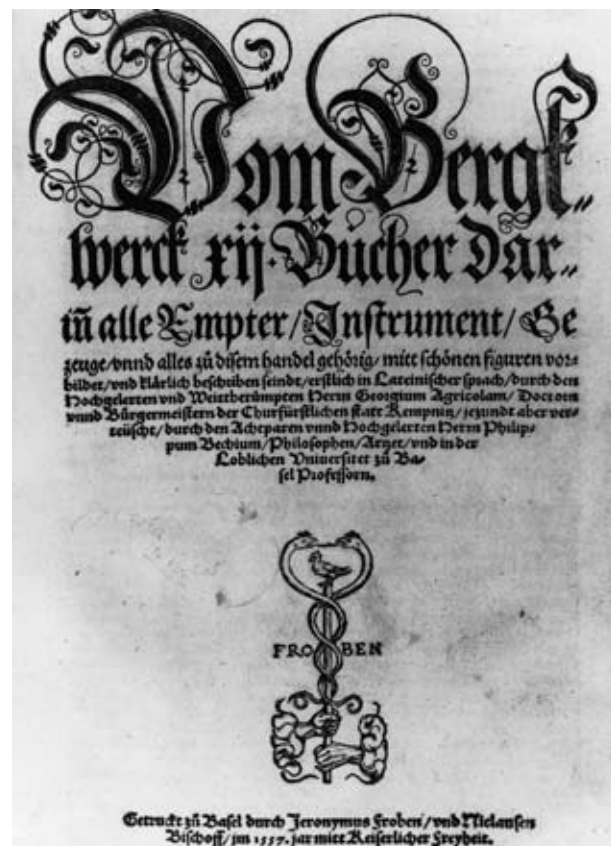 Vom Bergk⸗
werck xij. Bücher Dar⸗
iñ alle Empter/ Instrument/ Ge
zeuge/ vnnd alles zů disem handel gehörig/ mitt schönen figuren vor⸗
bildet/ vnd klärlich beschriben seindt/ erstlich in Lateinischer sprach/ durch den
Hochgelerten vnd Weittberümpten Herrn Georgium Agricolam/ Doctorn
vnnd Bürgermeistern der Churfürstlichen statt Kempnitz/ jezundt aber ver⸗
teüscht/ durch den Achtparen vnnd Hochgelerten Herrn Philip⸗
pum Bechium/ Philosophen/ Artzet/ vnd in der
Loblichen Vniuersitet zů Ba⸗
sel Professorn.
FRO BEN
Getruckt zů Basel durch Jeronymus Froben/ vnd Niclausen
Bischoff/ im 1557. jar mitt Keiserlicher Freyheit.